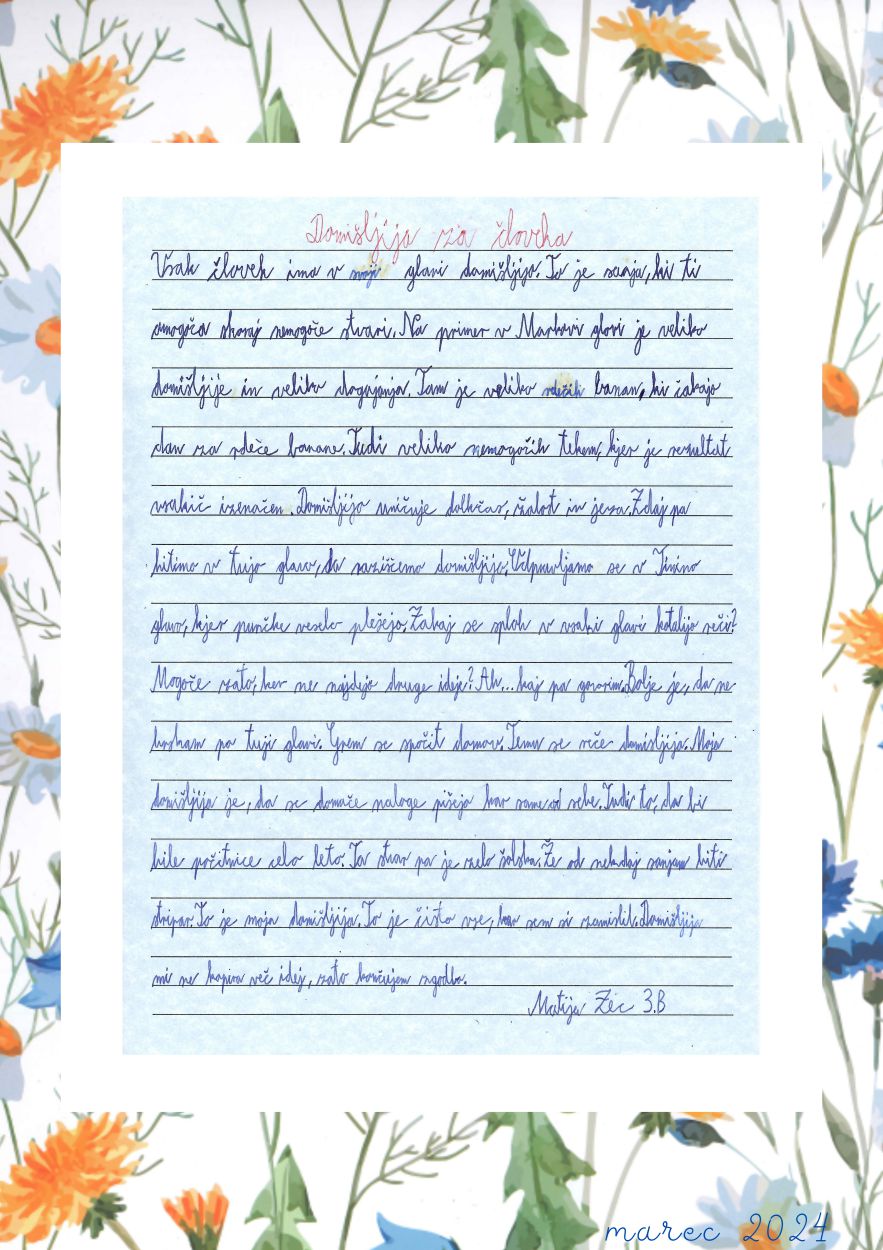 Domišljija za človka
Vsak človek ima v svoji glavi domišljijo. To je sanja, ki ti
omogoča skoraj nemogoče stvari. Na primer v Markovi glavi je veliko
domišljije in veliko dogajanja. Tam je veliko rdečih banan, ki čakajo
dan za rdeče banane. Tudi veliko nemogočih tekem, kjer je rezultat
vsakič izenačen. Domišljija uničuje dolkčas, žalost in jeza. Zdaj pa
hitimo v tujo glavo, da raziščemo domišljijo. Odpravljamo se v Tinino
glavo, kjer punčke veselo plešejo. Zakaj se sploh v vsaki glavi kotalijo reči?
Mogoče zato, ker ne najdejo druge ideje? Ah... kaj pa govorim. Bolje je, da ne
brskam po tuji glavi. Grem se spočit domov. Temu se reče domišljija. Moja
domišljija je, da se domače naloge pišejo kar same od sebe. Tudi to, da bi
bile počitnice celo leto. Ta stvar pa je zelo šolska. Že od nekdaj sanjam biti
stripar. To je moja domišljija. To je čisto vse, kar sem si zamislil. Domišljija
mi ne kapira več idej, zato končujem zgodbo.
Matija Zec 3.B
marec 2024